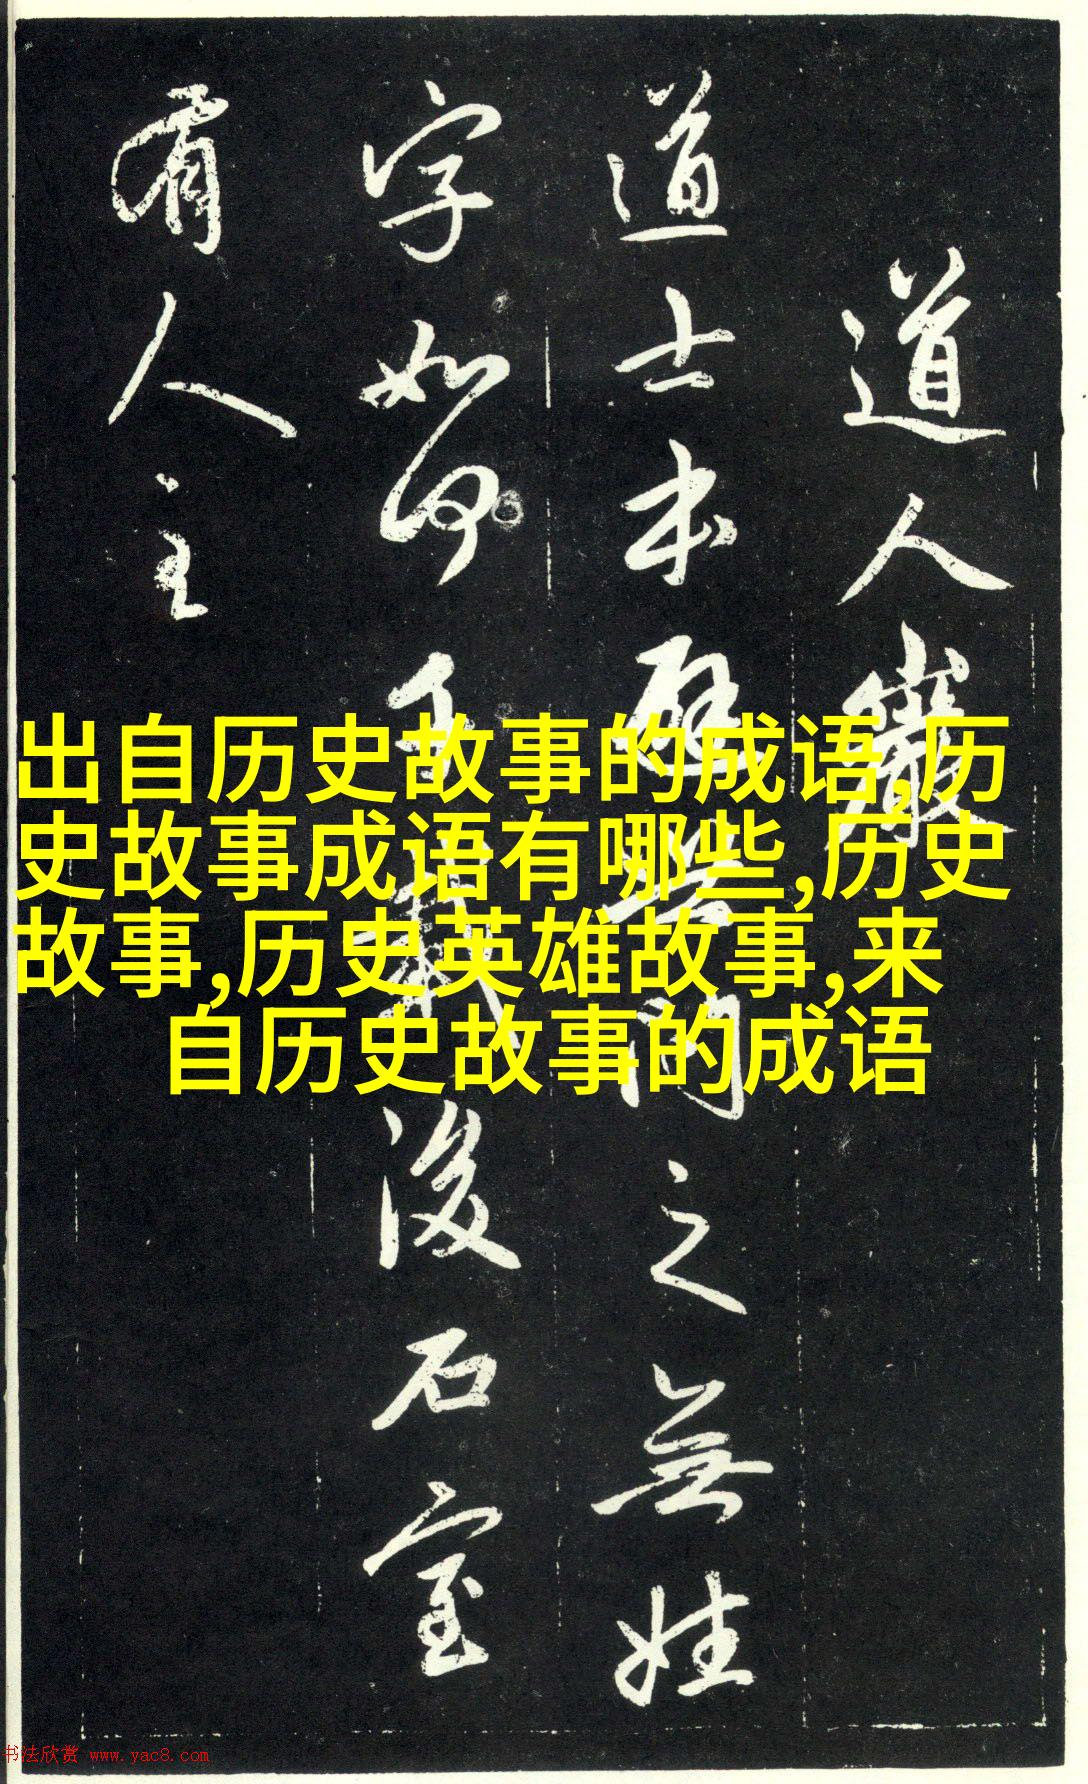 道人巖
道士本避世問之無姓
字如何千載後石室
有人主
出自历史故事的成语,历
史故事成语有哪些,历史
故事,历史英雄故事,来
自历史故事的成语
书法欣赏 www.yac8.com